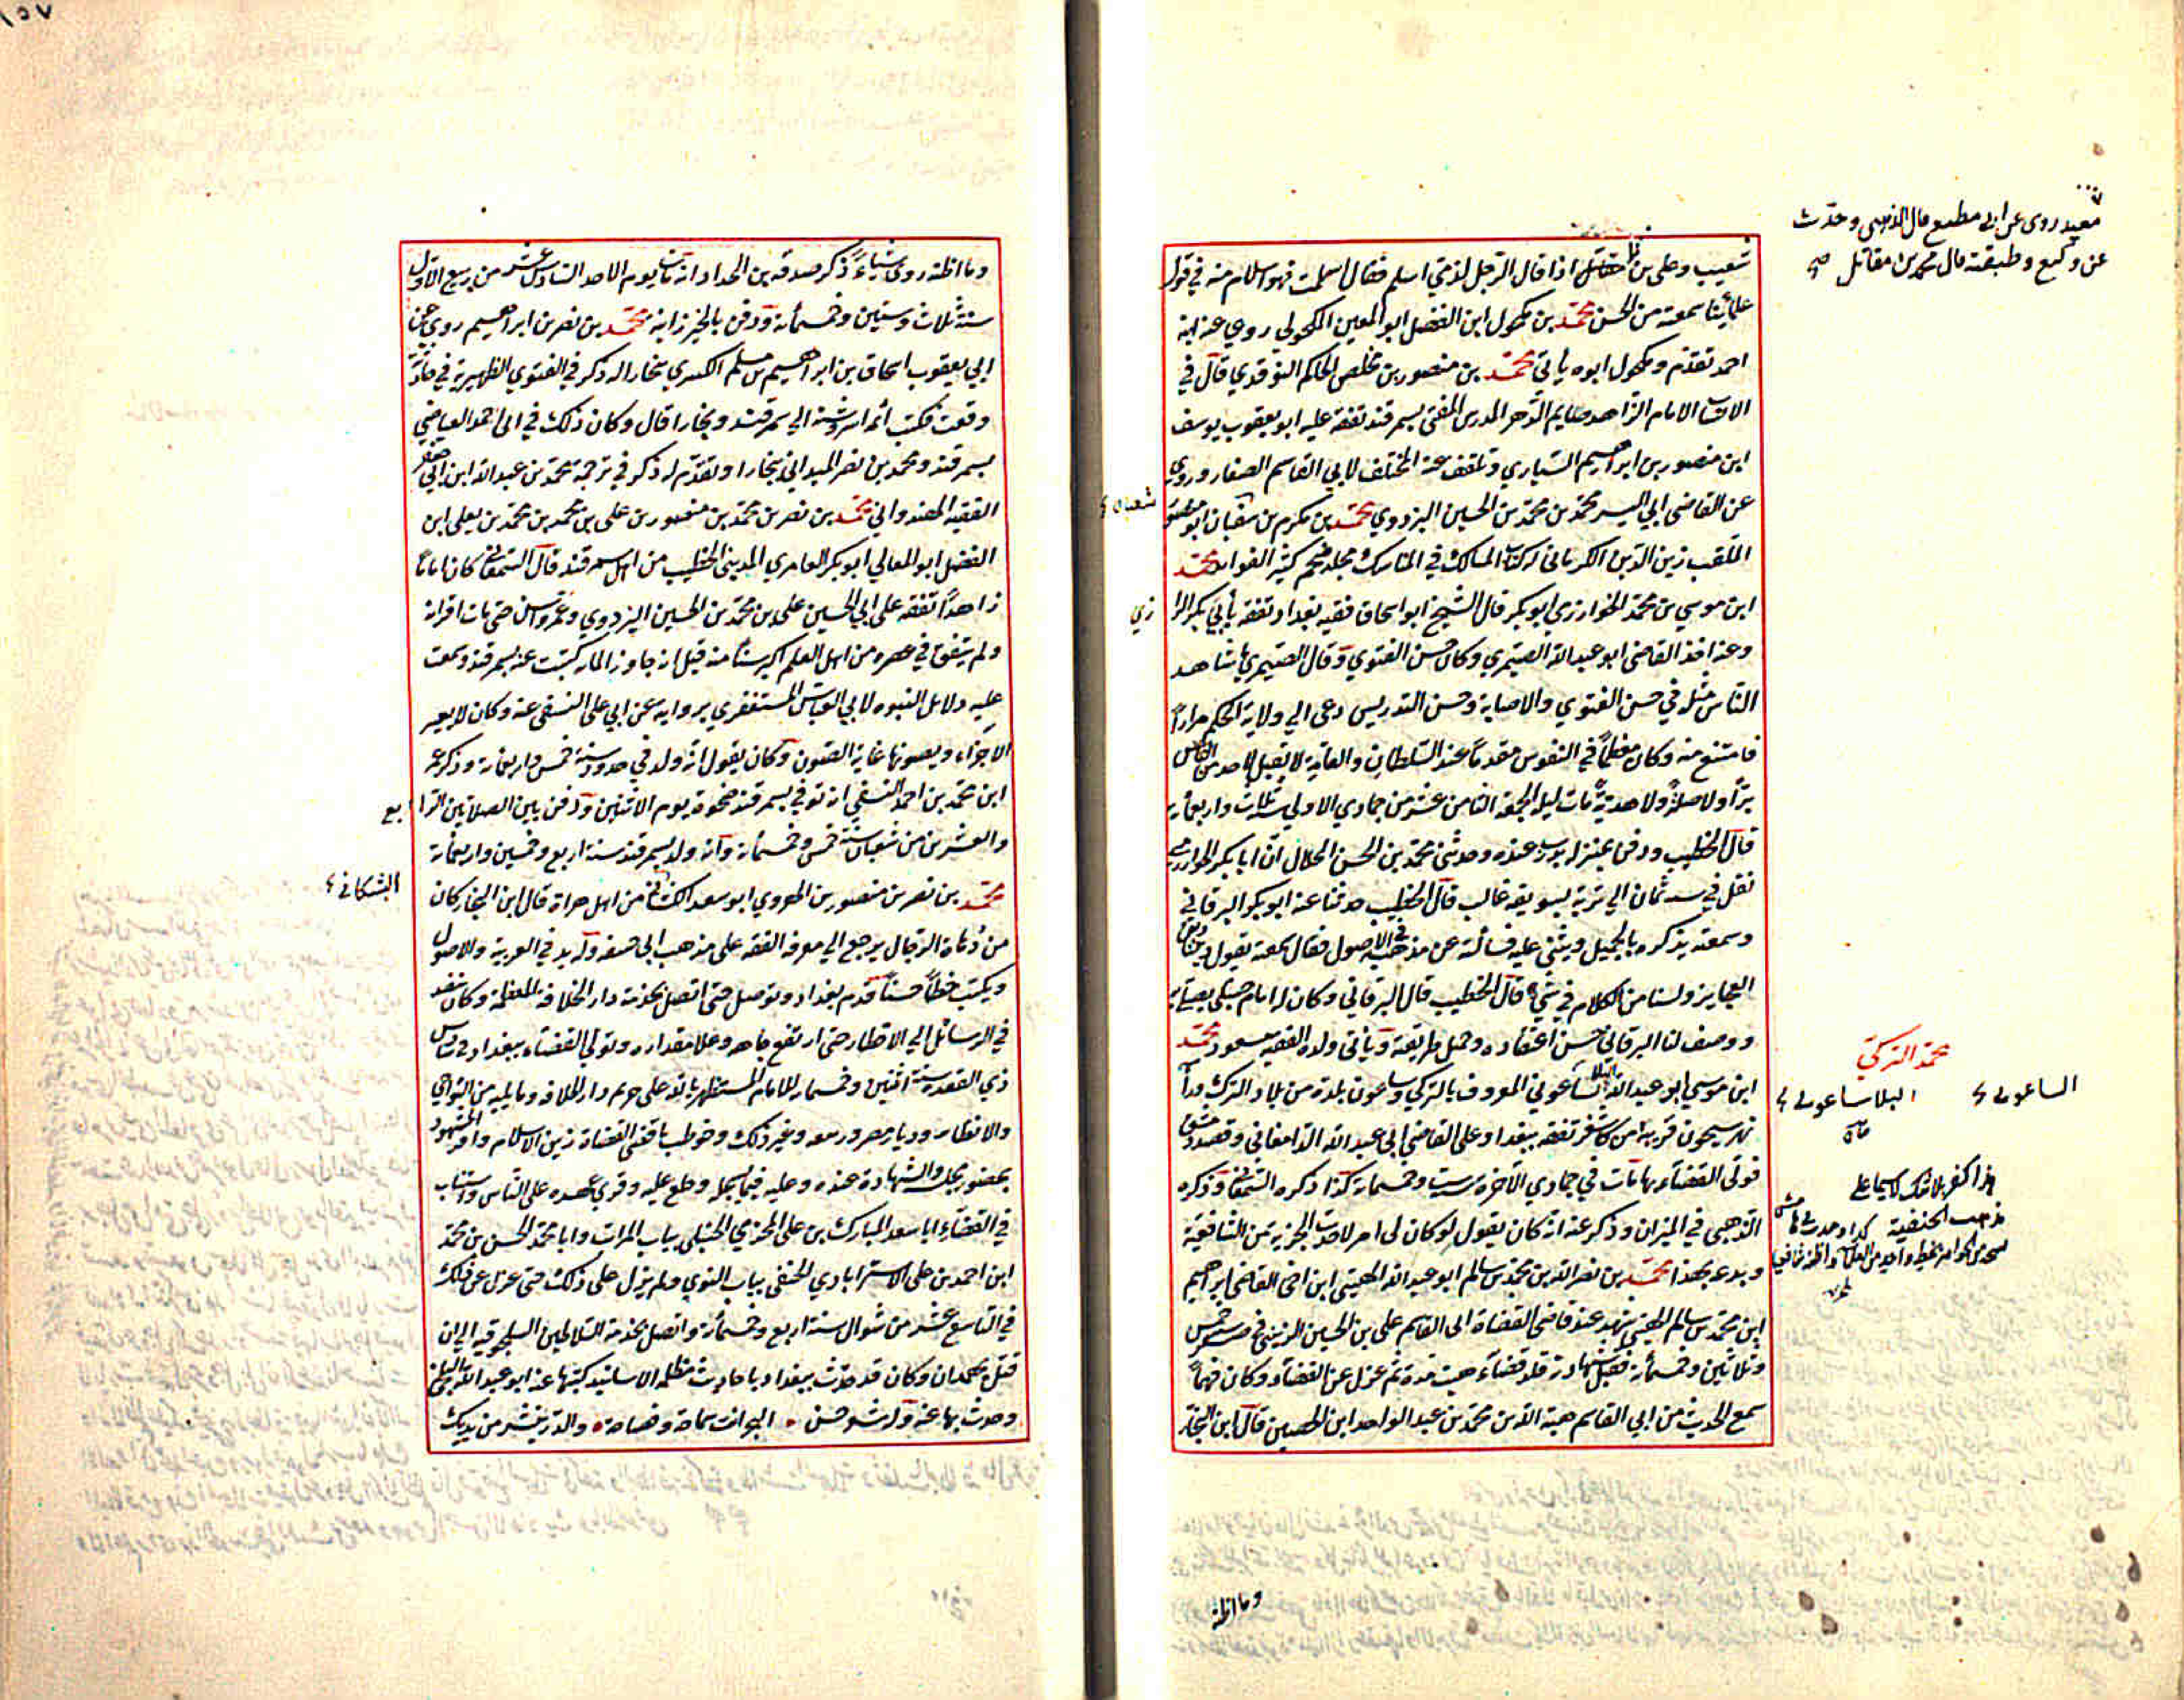 شعيب وعلى بن مقاتل اذا قال الرجل لذمي اسلم فقال اسلمت فهو اسلام منه في قول
علمائنا سمعته من الحسن محمد بن مكحول ابن الفضل ابو المعين المكحولي روى عنه ابنه
احمد تقدم ومكحول ابوه ياتى محمد بن منصور بن مخلص الحاكم النوقدي قال في
الانساب الامام الزاهد صايم الدهر المدرس المفتى بسمرقند تفقه عليه ابو يعقوب يوسف
ابن منصور بن ابراهيم السياري وتلقف عنه المختلف لابي القاسم الصفار وروى
عن القاضي ابي اليسر محمد بن محمد بن الحسين البزدوي محمد بن مكرم بن شعبان ابو منصور
الملقب زين الدين الكرماني له كتاب المسالك في المناسك مجلد ضخم كثير الفوايد محمد
ابن موسى بن محمد الخوارزمي ابو بكر قال الشيخ ابو اسحاق فقيه بغداد تفقه بابي بكر الرا
وعنه اخذ القاضي ابو عبد الله الصيمري وكان حسن الفتوي وقال الصيمري ما شاهد
الناس مثله في حسن الفتوي والاصابة وحسن التدريس دعى الي ولاية الحكم مرارا
فامتنع منه وكان معظما في النفوس مقدما عند السلطان والعامة لا يقبل لاحد من الناس
برا ولا صلة ولا هدية مات ليلة الجمعة الثامن عشر من جمادي الاولى سنة ثلاث واربعماية
قال الخطيب ودفن بمنزله بدرب عبده وحدثني محمد بن الحسن الخلال ان ابا بكر الخوارزمي
نقل في سنة ثمان الي تربة بسويقة غالب قال الخطيب حدثنا عنه ابو بكر البرقاني
وسمعته يذكره بالجميل ويثني عليه فسالته عن مذهبه في الاصول فقال سمعته يقول ديننا دين
العجايز ولسنا من الكلام في شيء قال الخطيب قال البرقاني وكان له امام حنبلى يصلي به
ووصف لنا البرقاني حسن اعتقاده وجميل طريقته وياتى ولده الفقيه مسعود محمد
ابن موسى ابو عبد الله البلاساغوني المعروف بالتركي وبلاساغون بلدة من بلاد الترك ورا
نهر سيحون قريبة من كاشغر تفقه ببغداد على القاضي ابي عبد الله الدامغاني وقصد دمشق
فولى القضاء بها مات في جمادي الاخرة سنة ست وخمسماية كذا ذكره السمعاني وذكره
الذهبي في الميزان وذكر عنه انه كان يقول لو كان لي امر لاخذت الجزية من الشافعية
وبدعه بهذا محمد بن نصر الله بن محمد بن سالم ابو عبد الله الهيتي ابن اخي القاضي ابراهيم
ابن محمد بن سالم الهيتي شهد عند قاضي القضاة ابي القاسم على بن الحسين الزينبي في صفر سنة خمس
وثلاثين وخمسماية فقبل شهادته قلد قضاء هيت مدة ثم عزل عن القضاء وكان فهما
سمع الحديث من ابي القاسم هبة الله بن محمد بن عبد الواحد ابن الحصين قال ابن النجار
معبد روى عن ابي مطيع قال الذهبى وحدث
عن وكيع وطبقته قال محمد بن مقاتل صح
شعبان
زي
محمد التركي
البلاساغوني
الساغوني
وما اظنه
١٥٧
وما اظنه روى شياء ذكر صدقة بن الحداد انه مات يوم الاحد السادس عشر من ربيع الاول
سنة ثلاث وستين وخمسماية ودفن بالخيزرانية محمد بن نصر بن ابراهيم روى عن
ابي يعقوب اسحاق بن ابراهيم بن مسلم الكسري ببخارا له ذكر في الفتوي الظهيرية في حادثة
وقعت فكتب أئمة اسروشنة الي سمرقند وبخارا قال وكان ذلك في ابي احمد العياضي
بسمرقند ومحمد بن نصر الميداني ببخارا وتقدم له ذكر في ترجمة محمد بن عبد الله ابن ابي جعفر
الفقيه الهندواني محمد بن نصر بن محمد بن منصور بن على بن محمد بن محمد بن يعلى ابن
الفضل ابو المعالي ابو بكر العامري المديني الخطيب من اهل سمرقند قال السمعاني كان اماما
زاهدا تفقه على ابي الحسين على بن محمد بن الحسين البزدوي وعمر واسن حتى مات اقرانه
ولم يتفق في عصره من اهل العلم اكبر سنا منه قيل انه جاوز الماية كتبت عنه بسمرقند وسمعت
عليه دلايل النبوه لابي العباس المستغفري بروايه عن ابي على النسفي عنه وكان لا يعير
الاجزاء ويصونها غاية الصون وكان يقول انه ولد في حدود سنة خمس واربعماية وذكر عمر
ابن محمد بن احمد النسفي انه توفي بسمرقند ضحوة يوم الاثنين ودفن بين الصلاتين الرا بع
والعشرين من شعبان سنة خمس وخمسماية وانه ولد بسمرقند سنة اربع وخمسين واربعماية
محمد بن نصر بن منصور بن الهروي ابو سعد من اهل هراة قال ابن النجار كان
من دهاة الرجال يرجع الي معرفة الفقه على مذهب ابي حنيفة وله يد في العربية وللاصول
ويكتب خطا حسنا قدم بغداد وتوصل حتى اتصل بخدمة دار الخلافة المعظمة وكان ينفذ
في الرسائل الي الاقطار حتى ارتفع جاهه وعلا مقداره وتولي القضاء ببغداد في سادس
ذي القعدة سنة اثنتين وخمسماية للامام المستظهر بالله على حريم دار الخلافة وما يليه من النواحي
والاقطار وديار مصر وربيعه وغير ذلك وخوطب باقضى القضاة زين الاسلام وامر الشهود
بحضور مجلسه والشهادة عنده وعليه فيما يسجله وخلع عليه وقري عهده على الناس واستناب
في القضاء ابا سعد المبارك بن على المخرمي الحنبلي بباب المراتب وابا محمد الحسن بن محمد
ابن احمد بن على الاستراباذي الحنفي بباب النوبي ولم يزل على ذلك حتى عزل عن ذلك
في التاسع عشر من شوال سنة اربع وخمسماية واتصل بخدمة السلاطين السلجوقيه الي ان
قتل بهمدان وكان قد حدث ببغداد باحاديث مظلمة الاسانيد كتبها عنه ابو عبد الله البلخي
وحدث بها عنه وله شعر حسن البحر انت سماحة وفصاحة والدر ينثر من يديك
البشكاني